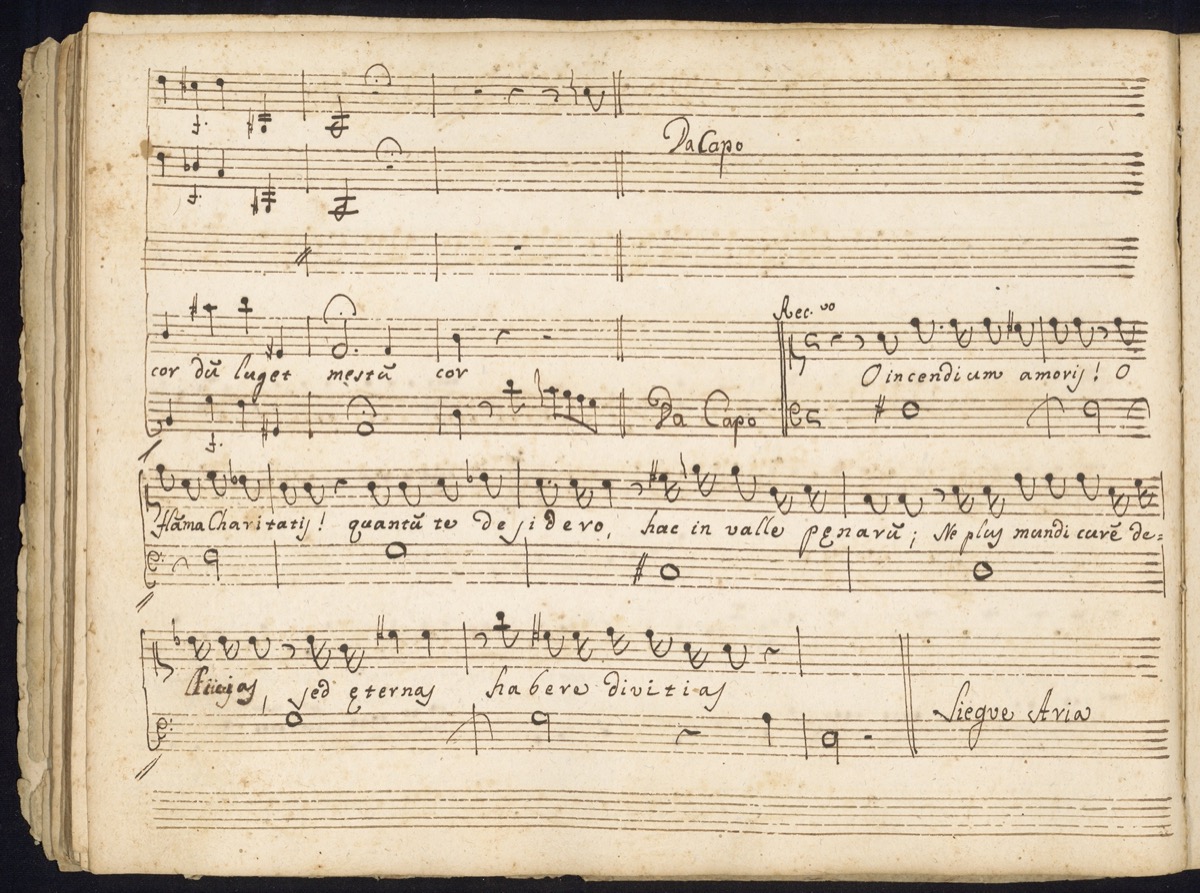 Da Capo
Rec.vo
cor dū luget męstū cor
O incendium amoris! O
Da Capo
flāma Charitatis! quantū te desidero, hac in valle pęnarū; Ne plus mundi curē de=
sed ęternas habere divitias
Siegue Aria